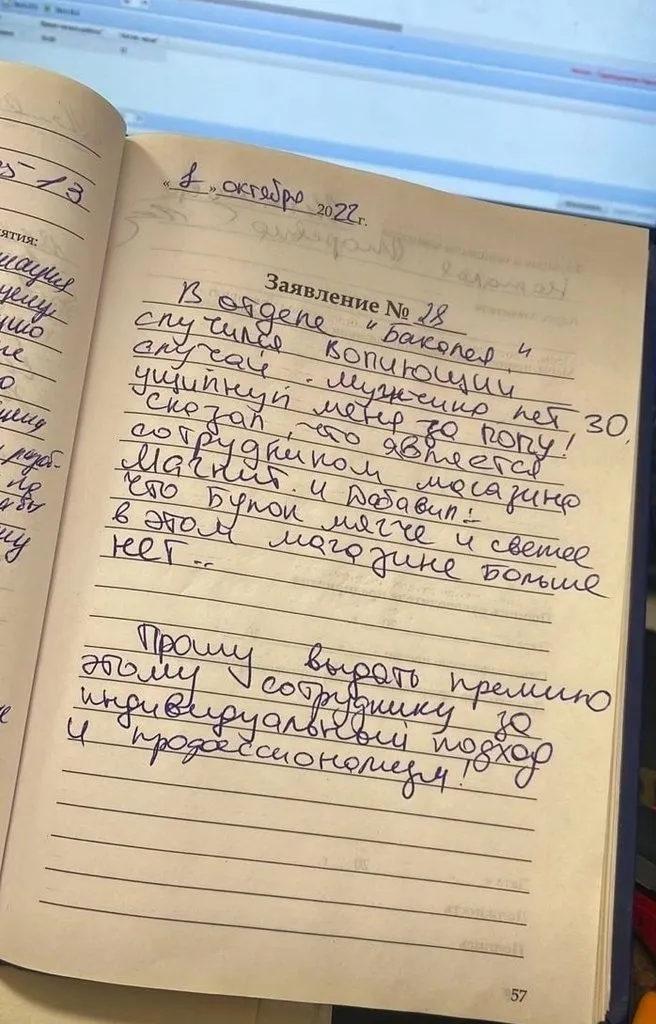 5-13
ятия:
« 8 » октября 2022 г.
Заявление № 28
В отделе "Бакалея"
случился вопиющий
случай. Мужчина лет 30,
ущипнул меня за попу!
сказал, что является
сотрудником магазина
Магнит. и добавил:-
что булок мягче и свежее
в этом магазине больше
нет..
Прошу выдать премию
этому сотруднику за
индивидуальный подход
и профессионализм!
57